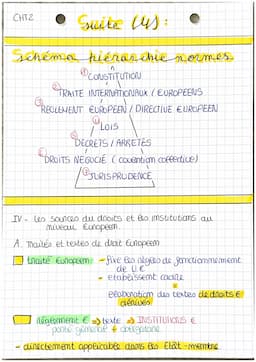 CHT2
Suite (4) :
Schéma hiérarchie normes
① CONSTITUTION
② TRAITE INTERNATIONAUX / EUROPEENS
③ REGLEMENT EUROPÉEN / DIRECTIVE EUROPEEN
④ LOIS
⑤ DÉCRETS / ARRETÉS
⑥ DROITS NEGOCIÉ ( convention collective)
⑦ JURISPRUDENCE
IV - Les sources du droits et les institutions au
niveau Européen.
A. Traités et textes de droit Européen
traité Européen - fixe les régles de fonctionnement
de U.E
- établissent cadre
élaboration des textes de droits €
dérivés
réglement € → texte → INSTITUTIONS €
portée générale + obligatoire
- directement applicable dans les Etat-membre